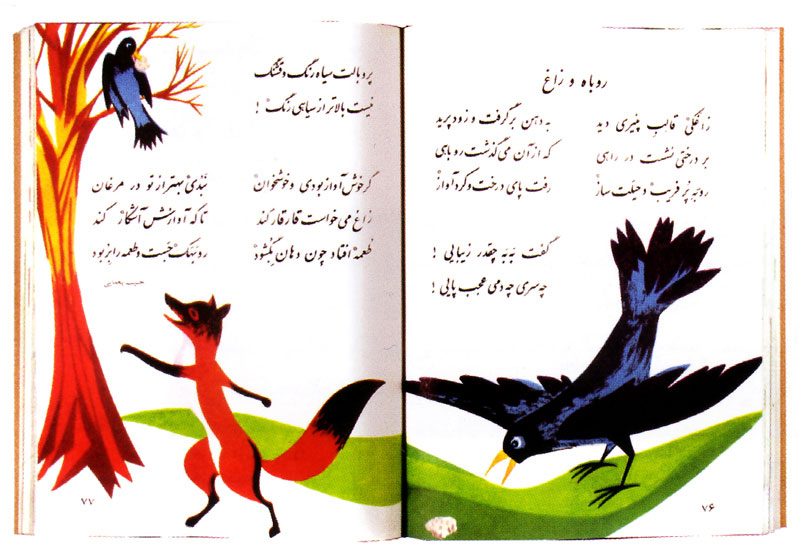 روباه و زاغ
زاغکی قالب پنیری دید به دهن بر گرفت و زود پرید
بر درختی نشست در راهی که از آن می گذشت روباهی
روبه پر فریب و حیلت ساز رفت پای درخت و کرد آواز
گفت به به چقدر زیبایی !
چه سری چه دمی عجب پایی !
۷۶
پر و بالت سیاه رنگ و قشنگ
نیست بالاتر از سیاهی رنگ !
گر خوش آواز بودی و خوشخوان نبدی بهتر از تو در مرغان
زاغ می خواست قار قار کند تا که آوازش آشکار کند
طعمه افتاد چون دهان بگشود روبهک جست و طعمه را بربود
حبیب یغمایی
۷۷